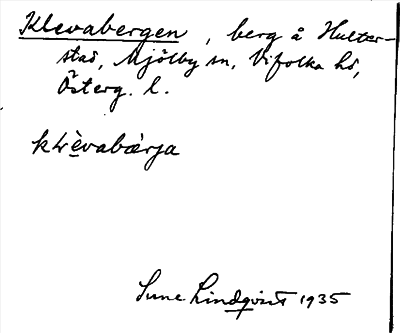 Klevabergen, berg å Hulter-
stad, Mjölby sn, Vifolka hd,
Österg. l.
klèvabærja
Sune Lindqvist 1935